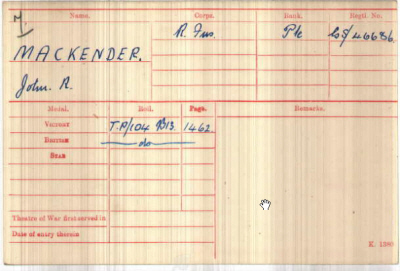 Name. Corps. Rank. Regtl. No.
MACKENDER. R. Fus. Pte GS/46636.
John. R.
Medal. Roll. Page. Remarks.
VICTORY T.P/104 B13. 1462
BRITISH do
STAR
Theatre of War first served in
Date of entry therein
K. 1380